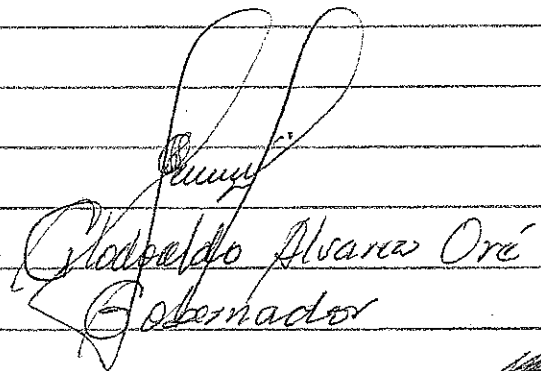 Glodoaldo Alvarez Oré
Gobernador